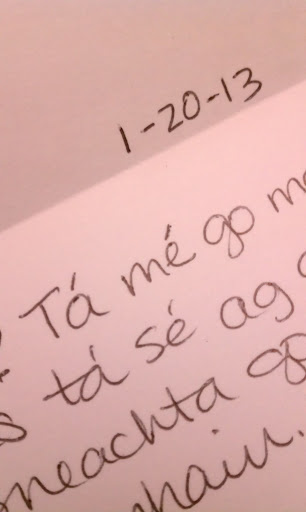 1-20-13
Tá mé go m
s tá sé ag
neachta go
hain.